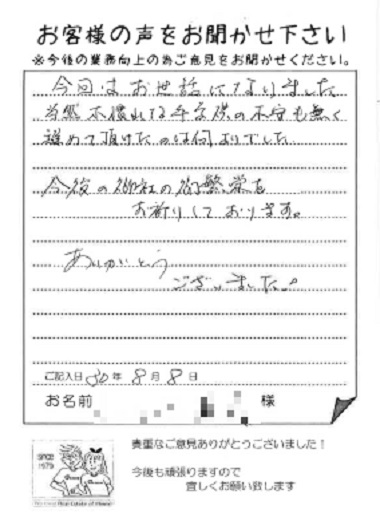 お客様の声をお聞かせ下さい
※今後の業務向上の為ご意見をお聞かせください。
今回はお世話になりました
当然不慣れで手続の不安も無く
進めて頂けたのは何よりでした
今後の御社の御繁栄を
お祈りしております。
ありがとう
ございました。
ご記入日 30年 8月 8日
お名前 様
SINCE
1973
貴重なご意見ありがとうございました！
今後も頑張りますので
宜しくお願い致します